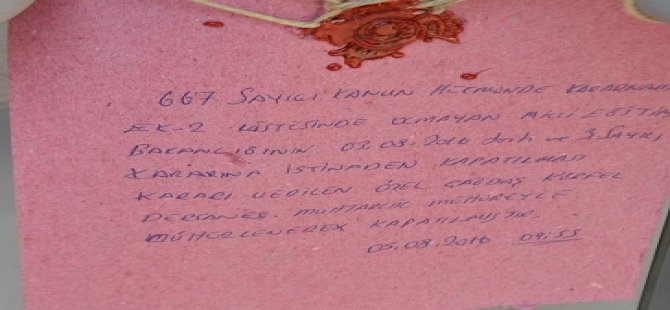 667 SAYILI KANUN HÜKMÜNDE KARARNAME
EK-2 LİSTESİNDE OLMAYAN MİLLİ EĞİTİM
BAKANLIĞININ 03.08.2016 tarih ve SAYILI
KARARINA İSTİNADEN KAPATILMASI
KARARI VERİLEN ÖZEL KÖRFEZ
DERSANESİ MUHTARLIK MÜHÜRÜYLE
MÜHÜRLENEREK KAPATILMIŞTIR
05.08.2016 09:55